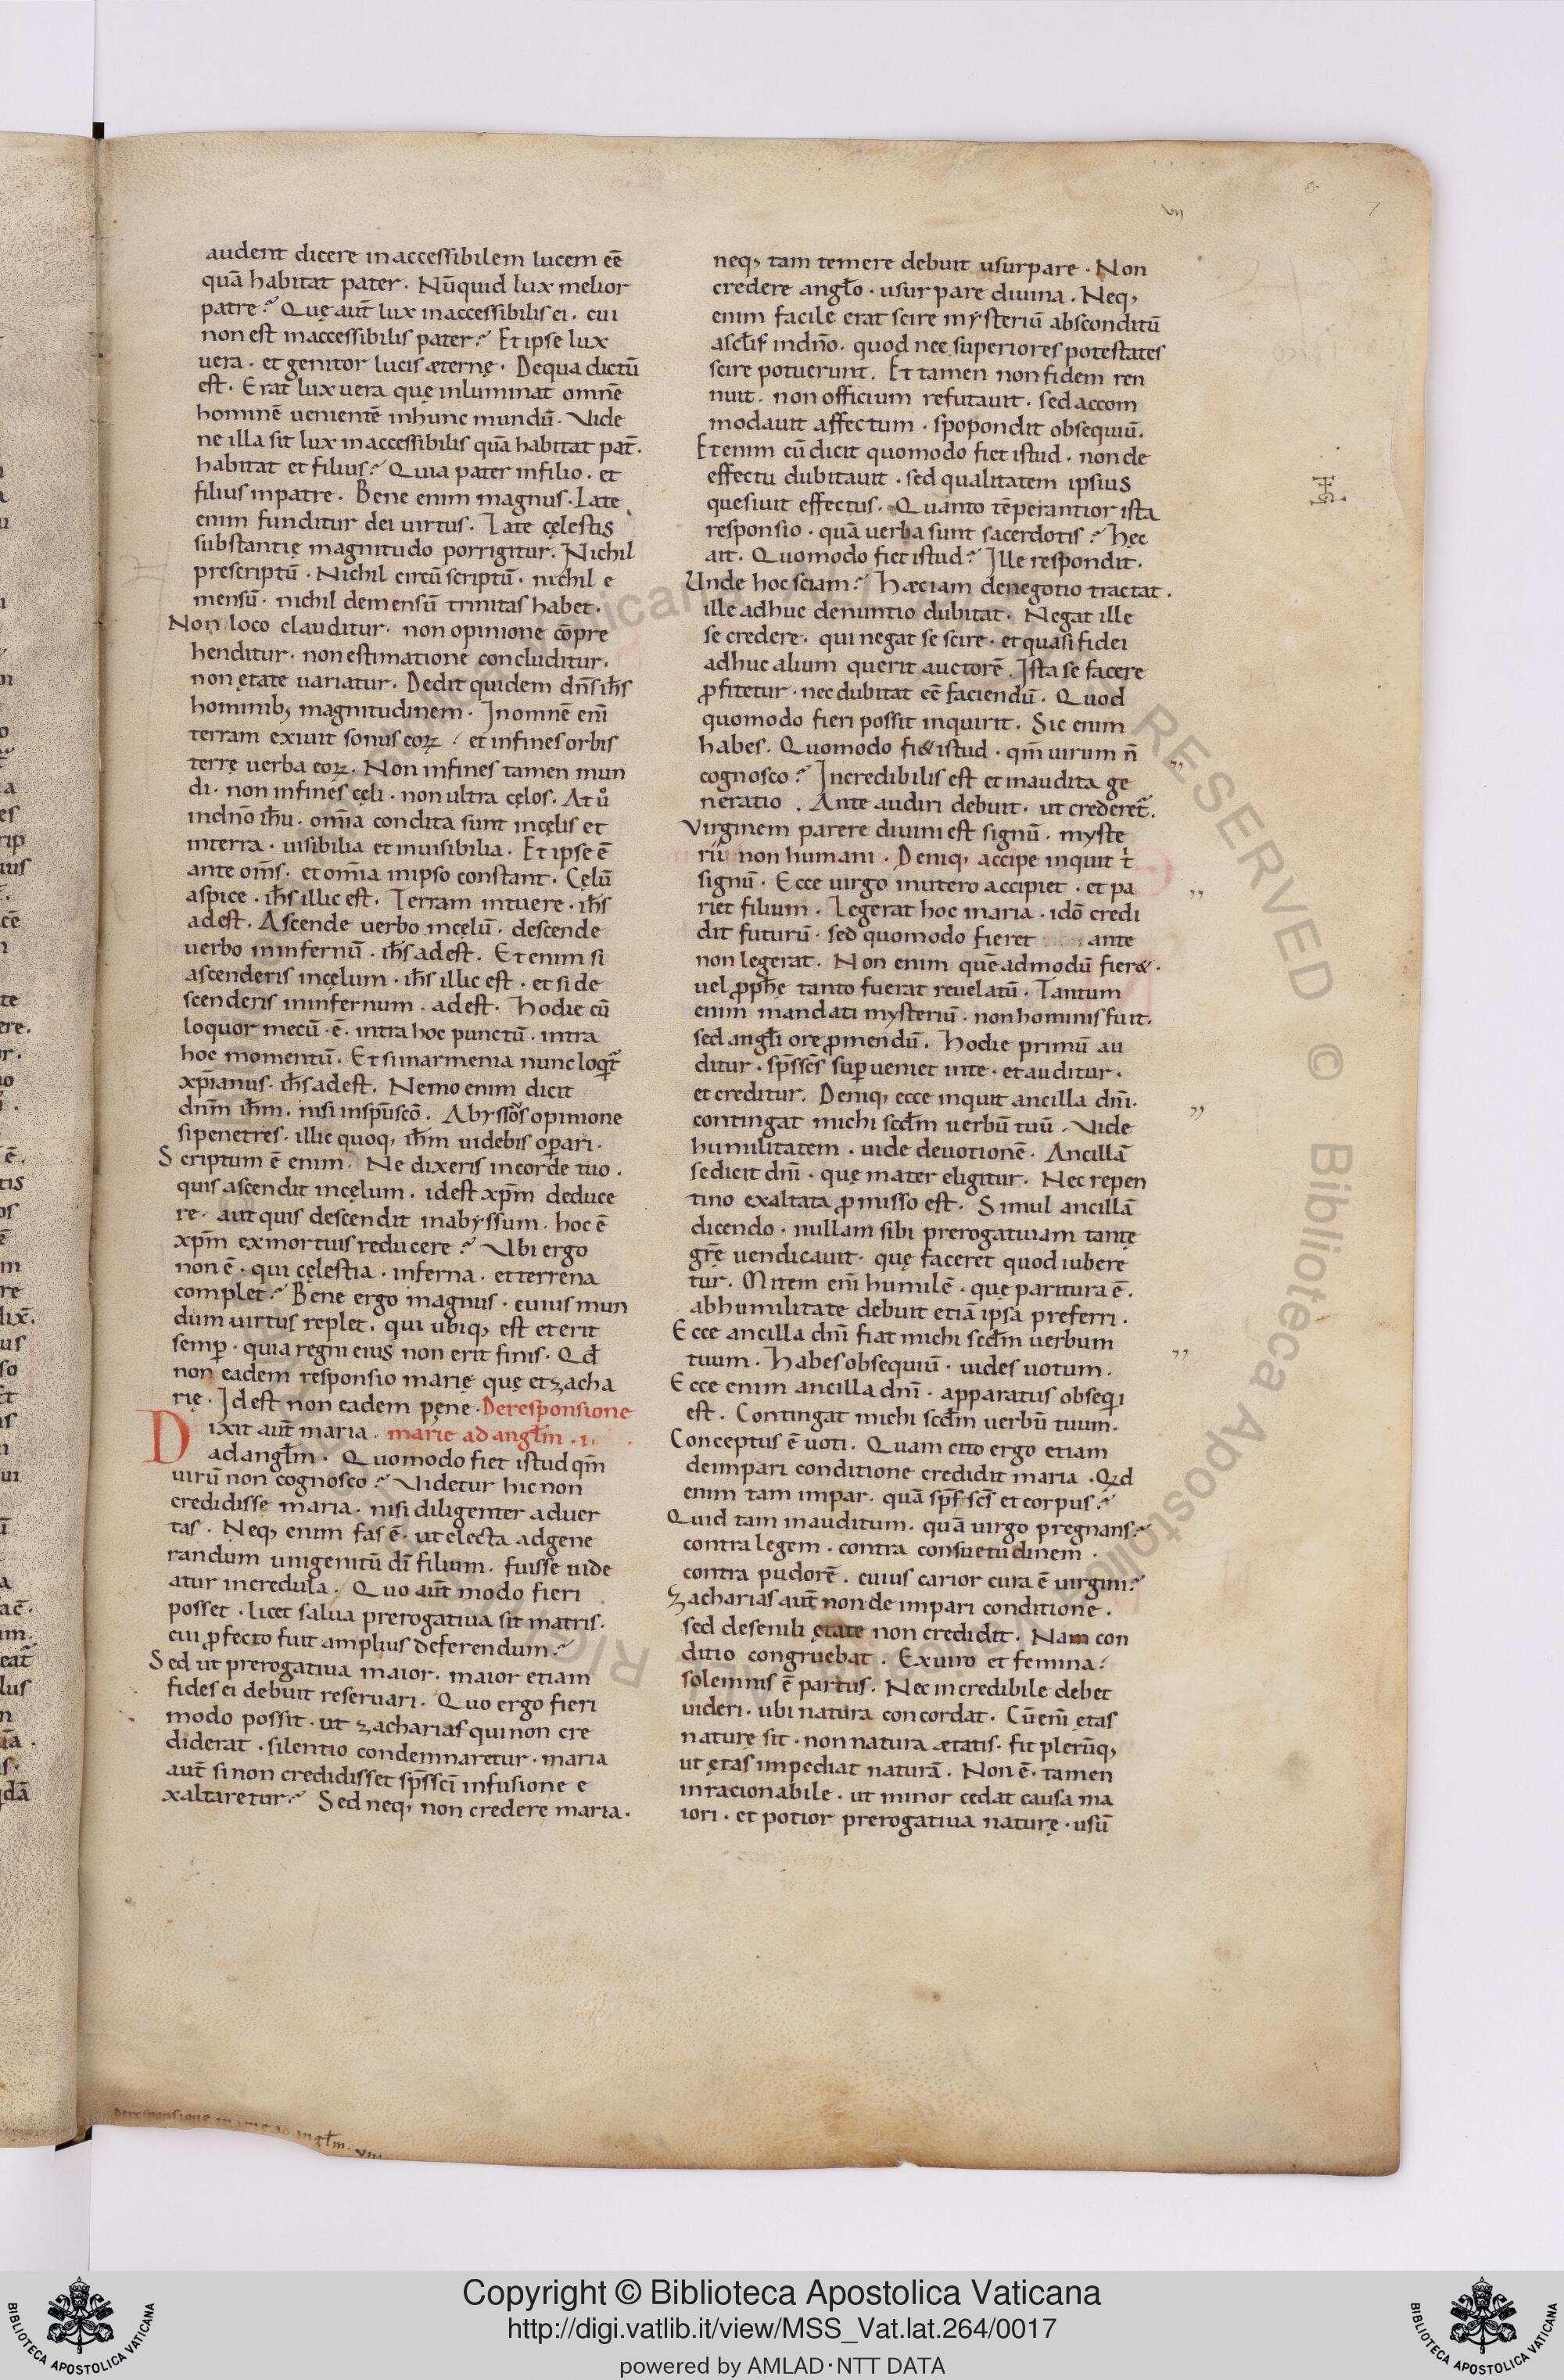 vii
7
audent dicere inaccessibilem lucem eē
quā habitat pater. Nūquid lux melior
patre? Quę aut̄ lux inaccessibilis ei. cui
non est inaccessibilis pater? Et ipse lux
uera. et genitor lucis æternę. De qua dictū
est. Erat lux uera quę inluminat omnē
hominē uenientē in hunc mundū. Vide
ne illa sit lux inaccessibilis quā habitat pat̄.
habitat et filius? Quia pater in filio. et
filius in patre. Bene enim magnus. Late
enim funditur dei uirtus. Late cęlestis
substantię magnitudo porrigitur. Nichil
prescriptū. Nichil circū scriptū. nichil e
mensū. nichil demensū trinitas habet.
Non loco clauditur. non opinione cōpre
henditur. non estimatione concluditur.
non ętate uariatur. Dedit quidem dn̄s ih̄s
hominib; magnitudinem. In omnē enī
terram exiuit sonus eoꝝ. et in fines orbis
terrę uerba eoꝝ. Non in fines tamen mun
di. non in fines cęli. non ultra cęlos. At ů
in dn̄o ih̄u. om̄ia condita sunt in cęlis et
in terra. uisibilia et inuisibilia. Et ipse ē
ante om̄s. et om̄ia in ipso constant. Cęlū
aspice. ih̄s illic est. Terram intuere. ih̄s
adest. Ascende uerbo in cęlū. descende
uerbo in infernū. ih̄s adest. Etenim si
ascenderis in cęlum. ih̄s illic est. et si de
scenderis in infernum. adest. Hodie cū
loquor mecū. ē. intra hoc punctū. intra
hoc momentū. Et si in armenia nunc loqit̃
xp̄ianus. ih̄s adest. Nemo enim dicit
dnm̄ ih̄m. nisi in sp̄u sc̄o. Abyssos opinione
si penetres. illic quoq; ih̄m uidebis oꝑari.
Scriptum ē enim. Ne dixeris in corde tuo.
quis ascendit in cęlum. id est xp̄m deduce
re. aut quis descendit in abyssum. hoc ē
xp̄m ex mortuis reducere? Vbi ergo
non ē. qui cęlestia. inferna. et terrena
complet? Bene ergo magnus. cuius mun
dum uirtus replet. qui ubiq; est et erit
semꝑ. quia regni eius non erit finis. Qđ
non eadem responsio marię quę et zacha
rię. Id est non eadem pęne. De responsione
Dixit aut̄ maria. marię ad angl̄m. i.
ad angl̄m. Quomodo fiet istud qm̄
uirū non cognosco? Videtur hic non
credidisse maria. nisi diligenter aduer
tas. Neq; enim fas ē. ut electa ad gene
randum unigenitū dī filium. fuisse uide
atur incredula. Quo aut̄ modo fieri
posset. licet salua prerogatiua sit matris.
cui ꝓfecto fuit amplius deferendum?
Sed ut prerogatiua maior. maior etiam
fides ei debuit reseruari. Quo ergo fieri
modo possit. ut zacharias qui non cre
diderat. silentio condemnaretur. maria
aut̄ si non credidisset sp̄s sc̄i infusione e
xaltaretur? Sed neq; non credere maria.
neq; tam temere debuit usurpare. Non
credere angl̄o. usurpare diuina. Neq;
enim facile erat scire mẏsteriū absconditū
a sc̄lis in dn̄o. quod nec superiores potestates
scire potuerunt. Et tamen non fidem ren
nuit. non officium refutauit. sed accom
modauit affectum. spopondit obsequiū.
Etenim cū dicit quomodo fiet istud. non de
effectu dubitauit. sed qualitatem ipsius
quesiuit effectus. Quanto tēperantior ista
responsio. quā uerba sunt sacerdotis? hęc
ait. Quomodo fiet istud? Ille respondit.
Unde hoc sciam? Hæc iam de negotio tractat.
ille adhuc de nuntio dubitat. Negat ille
se credere. qui negat se scire. et quasi fidei
adhuc alium querit auctorē. Ista se facere
ꝓfitetur. nec dubitat eē faciendū. Quod
quomodo fieri possit inquirit. Sic enim
habes. Quomodo fi& istud. qm̄ uirum n̄
cognosco? Incredibilis est et inaudita ge
neratio. Ante audiri debuit. ut crederet̃.
Virginem parere diuini est signū. myste
rii non humani. Deniq; accipe inquit t̄
signū. Ecce uirgo in utero accipiet. et pa
riet filium. Legerat hoc maria. idō credi
dit futurū. sed quomodo fieret ante
non legerat. Non enim quē admodū fier&.
uel ꝓph̄ę tanto fuerat reuelatū. Tantum
enim mandati mysteriū. non hominis fuit.
sed angl̄i ore ꝓmendū. Hodie primū au
ditur. sp̄s sc̄s suꝑ ueniet in te. et auditur.
et creditur. Deniq; ecce inquit ancilla dn̄i.
contingat michi scd̄m uerbū tuū. Vide
humilitatem. uide deuotionē. Ancillā
se dicit dn̄i. quę mater eligitur. Nec repen
tino exaltata ꝓmisso est. Simul ancillā
dicendo. nullam sibi prerogatiuam tantę
gr̄ę uendicauit. quę faceret quod iubere
tur. Mitem enī humilē. quę paritura ē.
ab humilitate debuit etiā ipsa preferri.
Ecce ancilla dn̄i fiat michi scd̄m uerbum
tuum. Habes obsequiū. uides uotum.
Ecce enim ancilla dn̄i. apparatus obseqi
est. Contingat michi scd̄m uerbū tuum.
Conceptus ē uoti. Quam cito ergo etiam
de impari conditione credidit maria. Qd
enim tam impar. quā sp̄s sc̄s et corpus?
Quid tam inauditum. quā uirgo pregnans?
contra legem. contra consuetudinem.
contra pudorē. cuius carior cura ē uirgini?
Zacharias aut̄ non de impari conditione.
sed de senili ętate non credidit. Nam con
ditio congruebat. Ex uiro et femina.
solemnis ē partus. Nec incredibile debet
uideri. ubi natura concordat. Cū enī ętas
naturę sit. non natura ætatis. fit plerūq;
ut ętas impediat naturā. Non ē. tamen
inracionabile. ut minor cedat causa ma
iori. et potior prerogatiua naturę. usū
De responsione marie ad angl̄m. VII
Copyright © Biblioteca Apostolica Vaticana
http://digi.vatlib.it/view/MSS_Vat.lat.264/0017
powered by AMLAD·NTT DATA
BIBLIOTECA APOSTOLICA VATICANA
BIBLIOTECA APOSTOLICA VATICANA